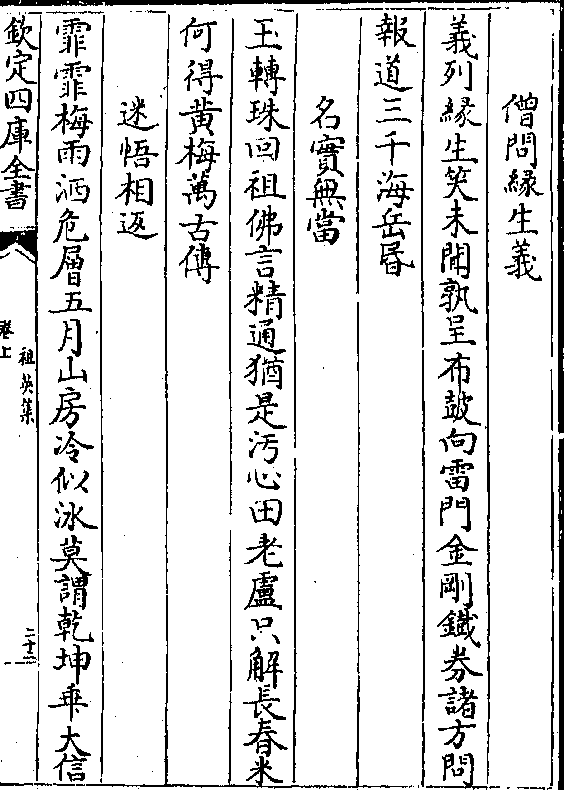 僧問緣生義
義列緣生笑未開孰呈布鼓向雷門金剛鐵券諸方問
報道三千海岳昏
名實無當
玉轉珠回祖佛言精通猶是汚心田老盧只解長舂米
何得黄梅萬古傳
迷悟相返
霏霏梅雨洒危層五月山房冷似冰莫謂乾坤乖大信
欽定四庫全書
祖英集
卷上
二十三